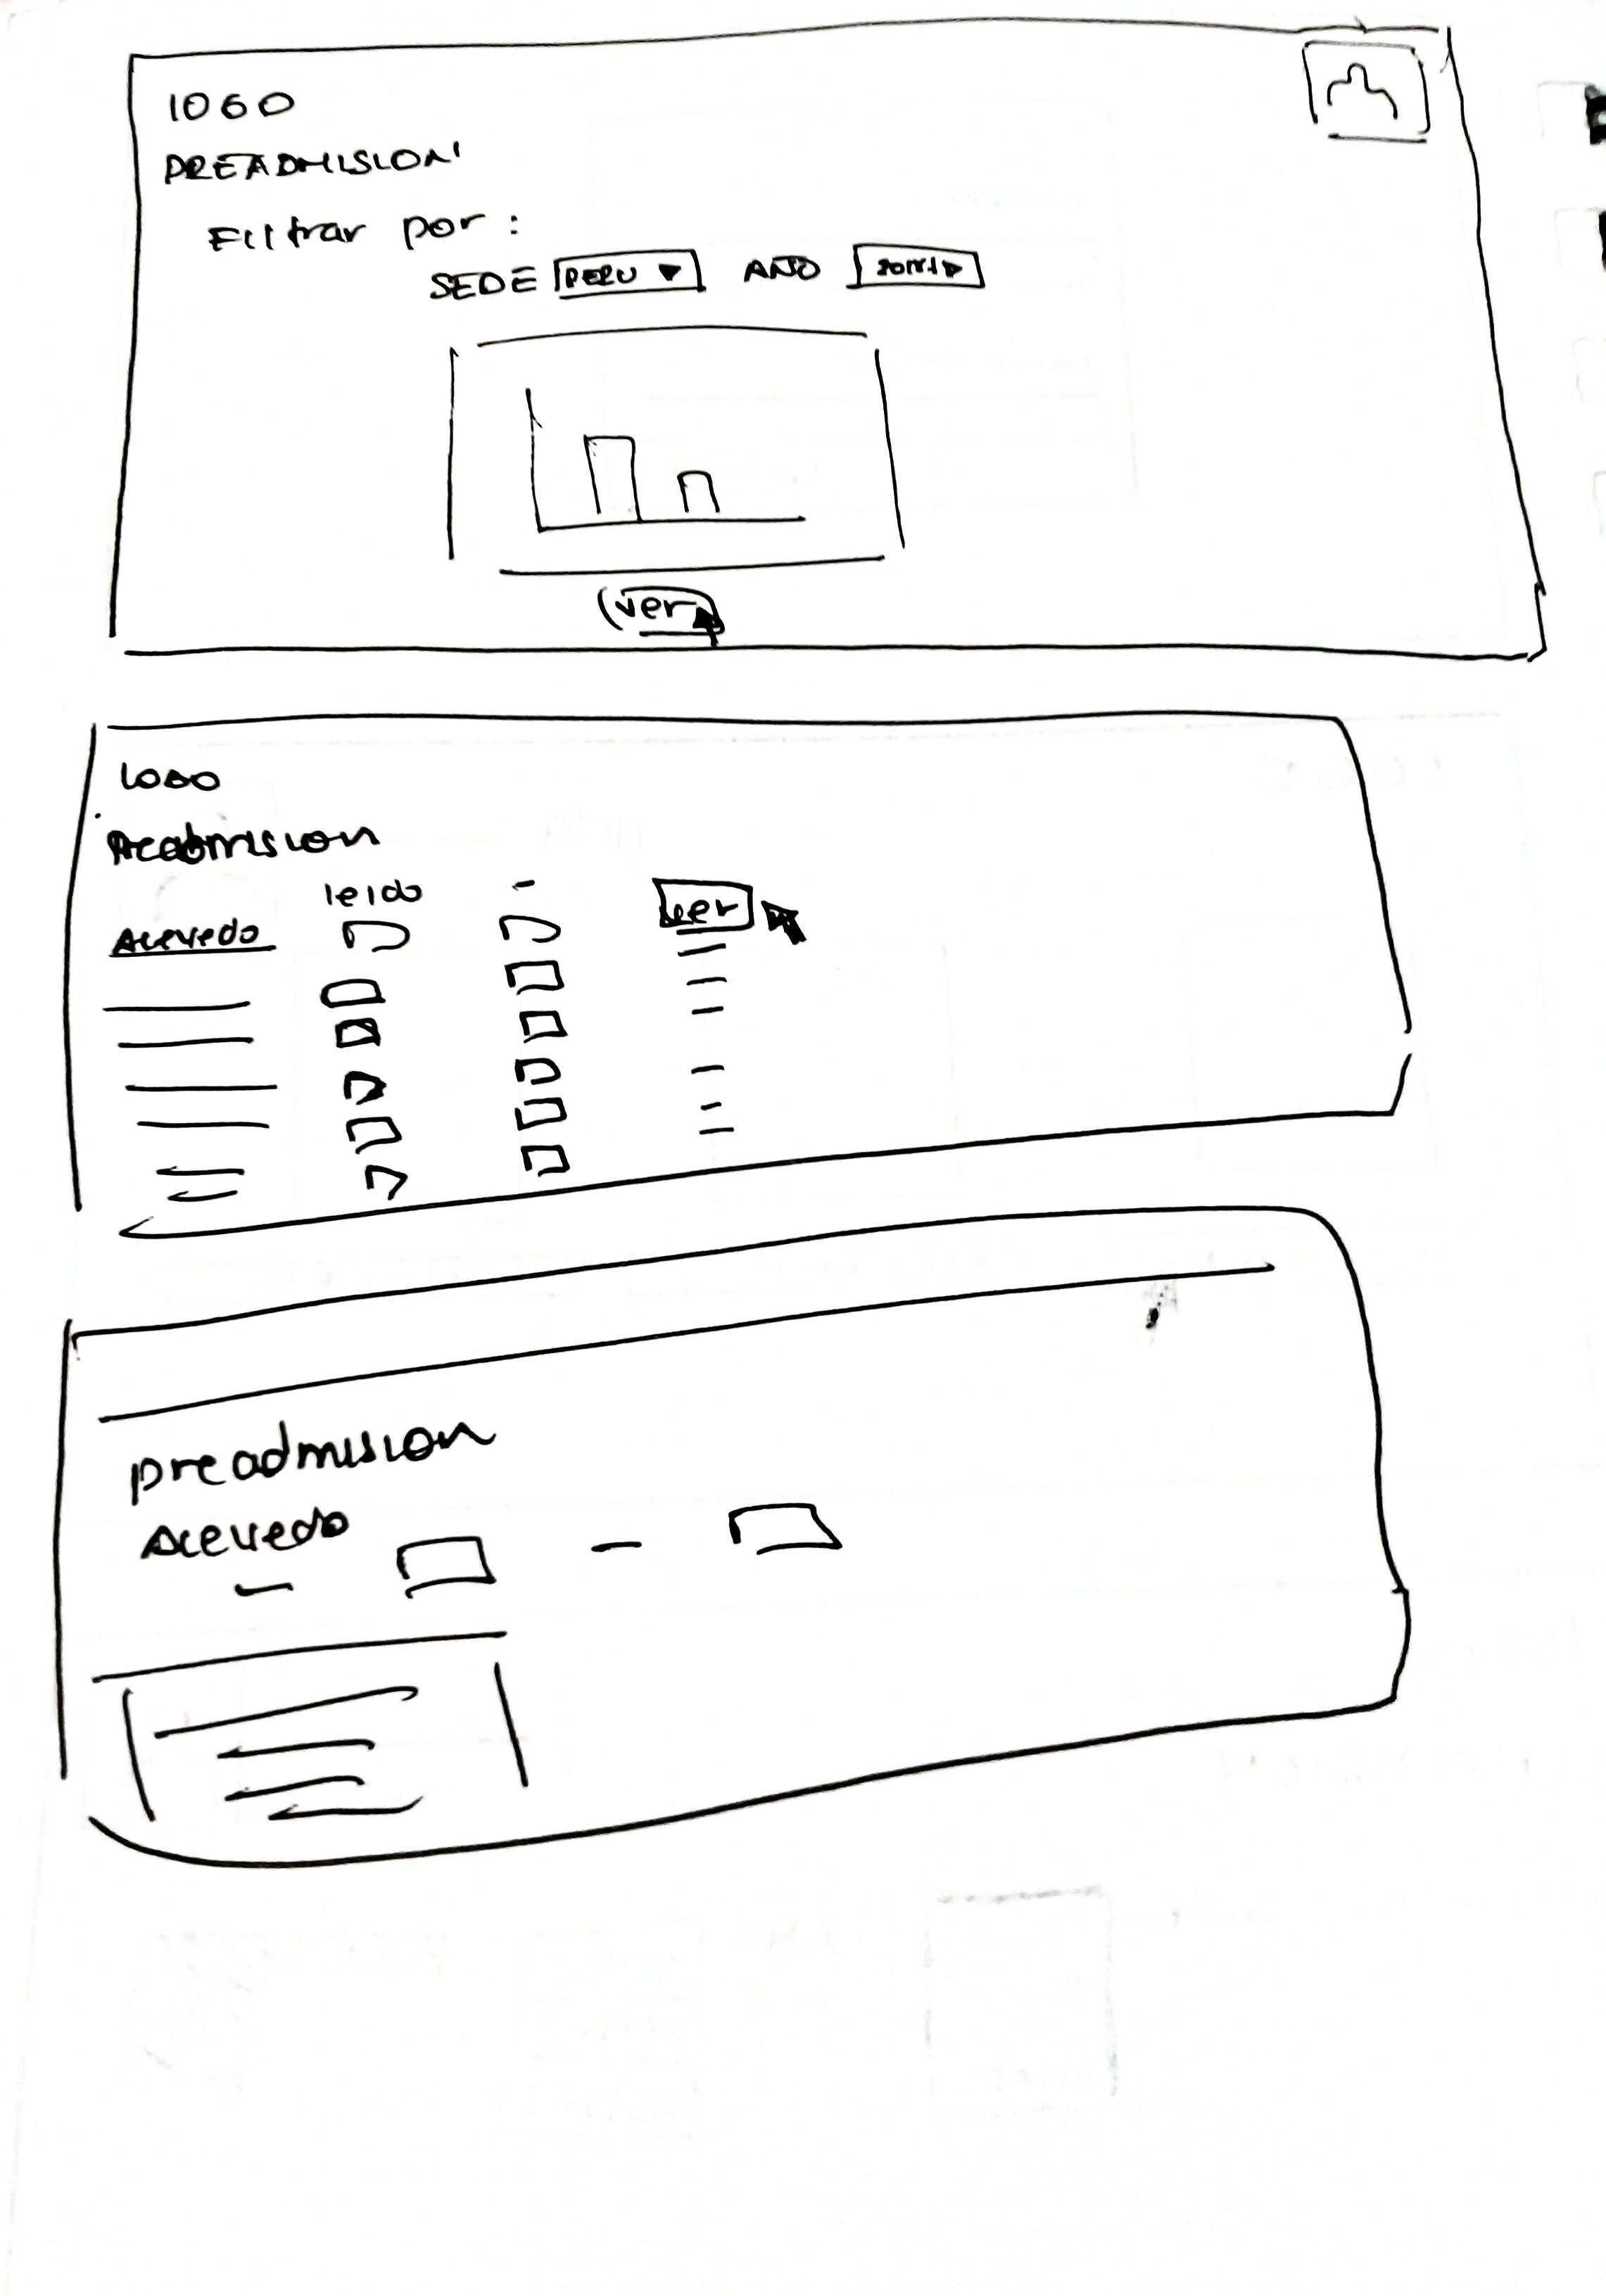 LOGO
PREADMISION
Filtrar por :
SEDE PERU AÑO
(ver)
LOGO
Preadmision
leido - ver
Acevedo
preadmision
Acevedo